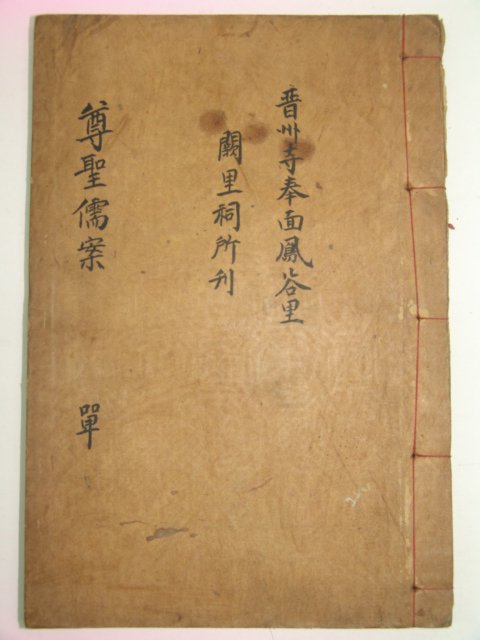 晋州寺奉面鳳谷里
闕里祠所刋
尊聖儒案
單